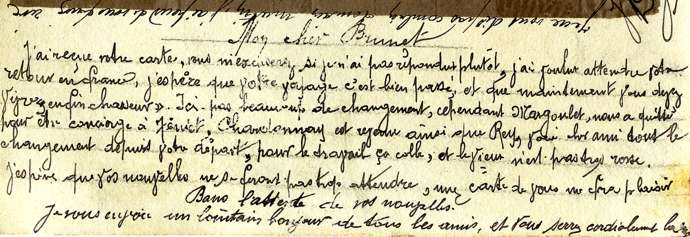 Mon cher Brunet
J'ai reçue votre carte, vous m'excuserez, si je n'ai pas répondu plutôt, j'ai voulut attendre votre
retour en france, j'espère que votre voyage c'est bien passé, et que maintenant vous devez
vivre en fin chasseur ». Ici pas beaucoup de changement, cependant Margoulet, nous a quitté
pour être concierge à Chardonnay est revenu ainsi que Rey, voilà cher ami tout le
changement depuis votre départ, pour le travail ça colle, et le vieux n'est pas trop rosse.
J'espère que vos nouvelles ne se feront pas trop attendre, une carte de vous me fera plaisir
Dans l'attente de vos nouvelles.
Je vous envoie un lointain bonjour de tous les amis, et vous serre cordialement la